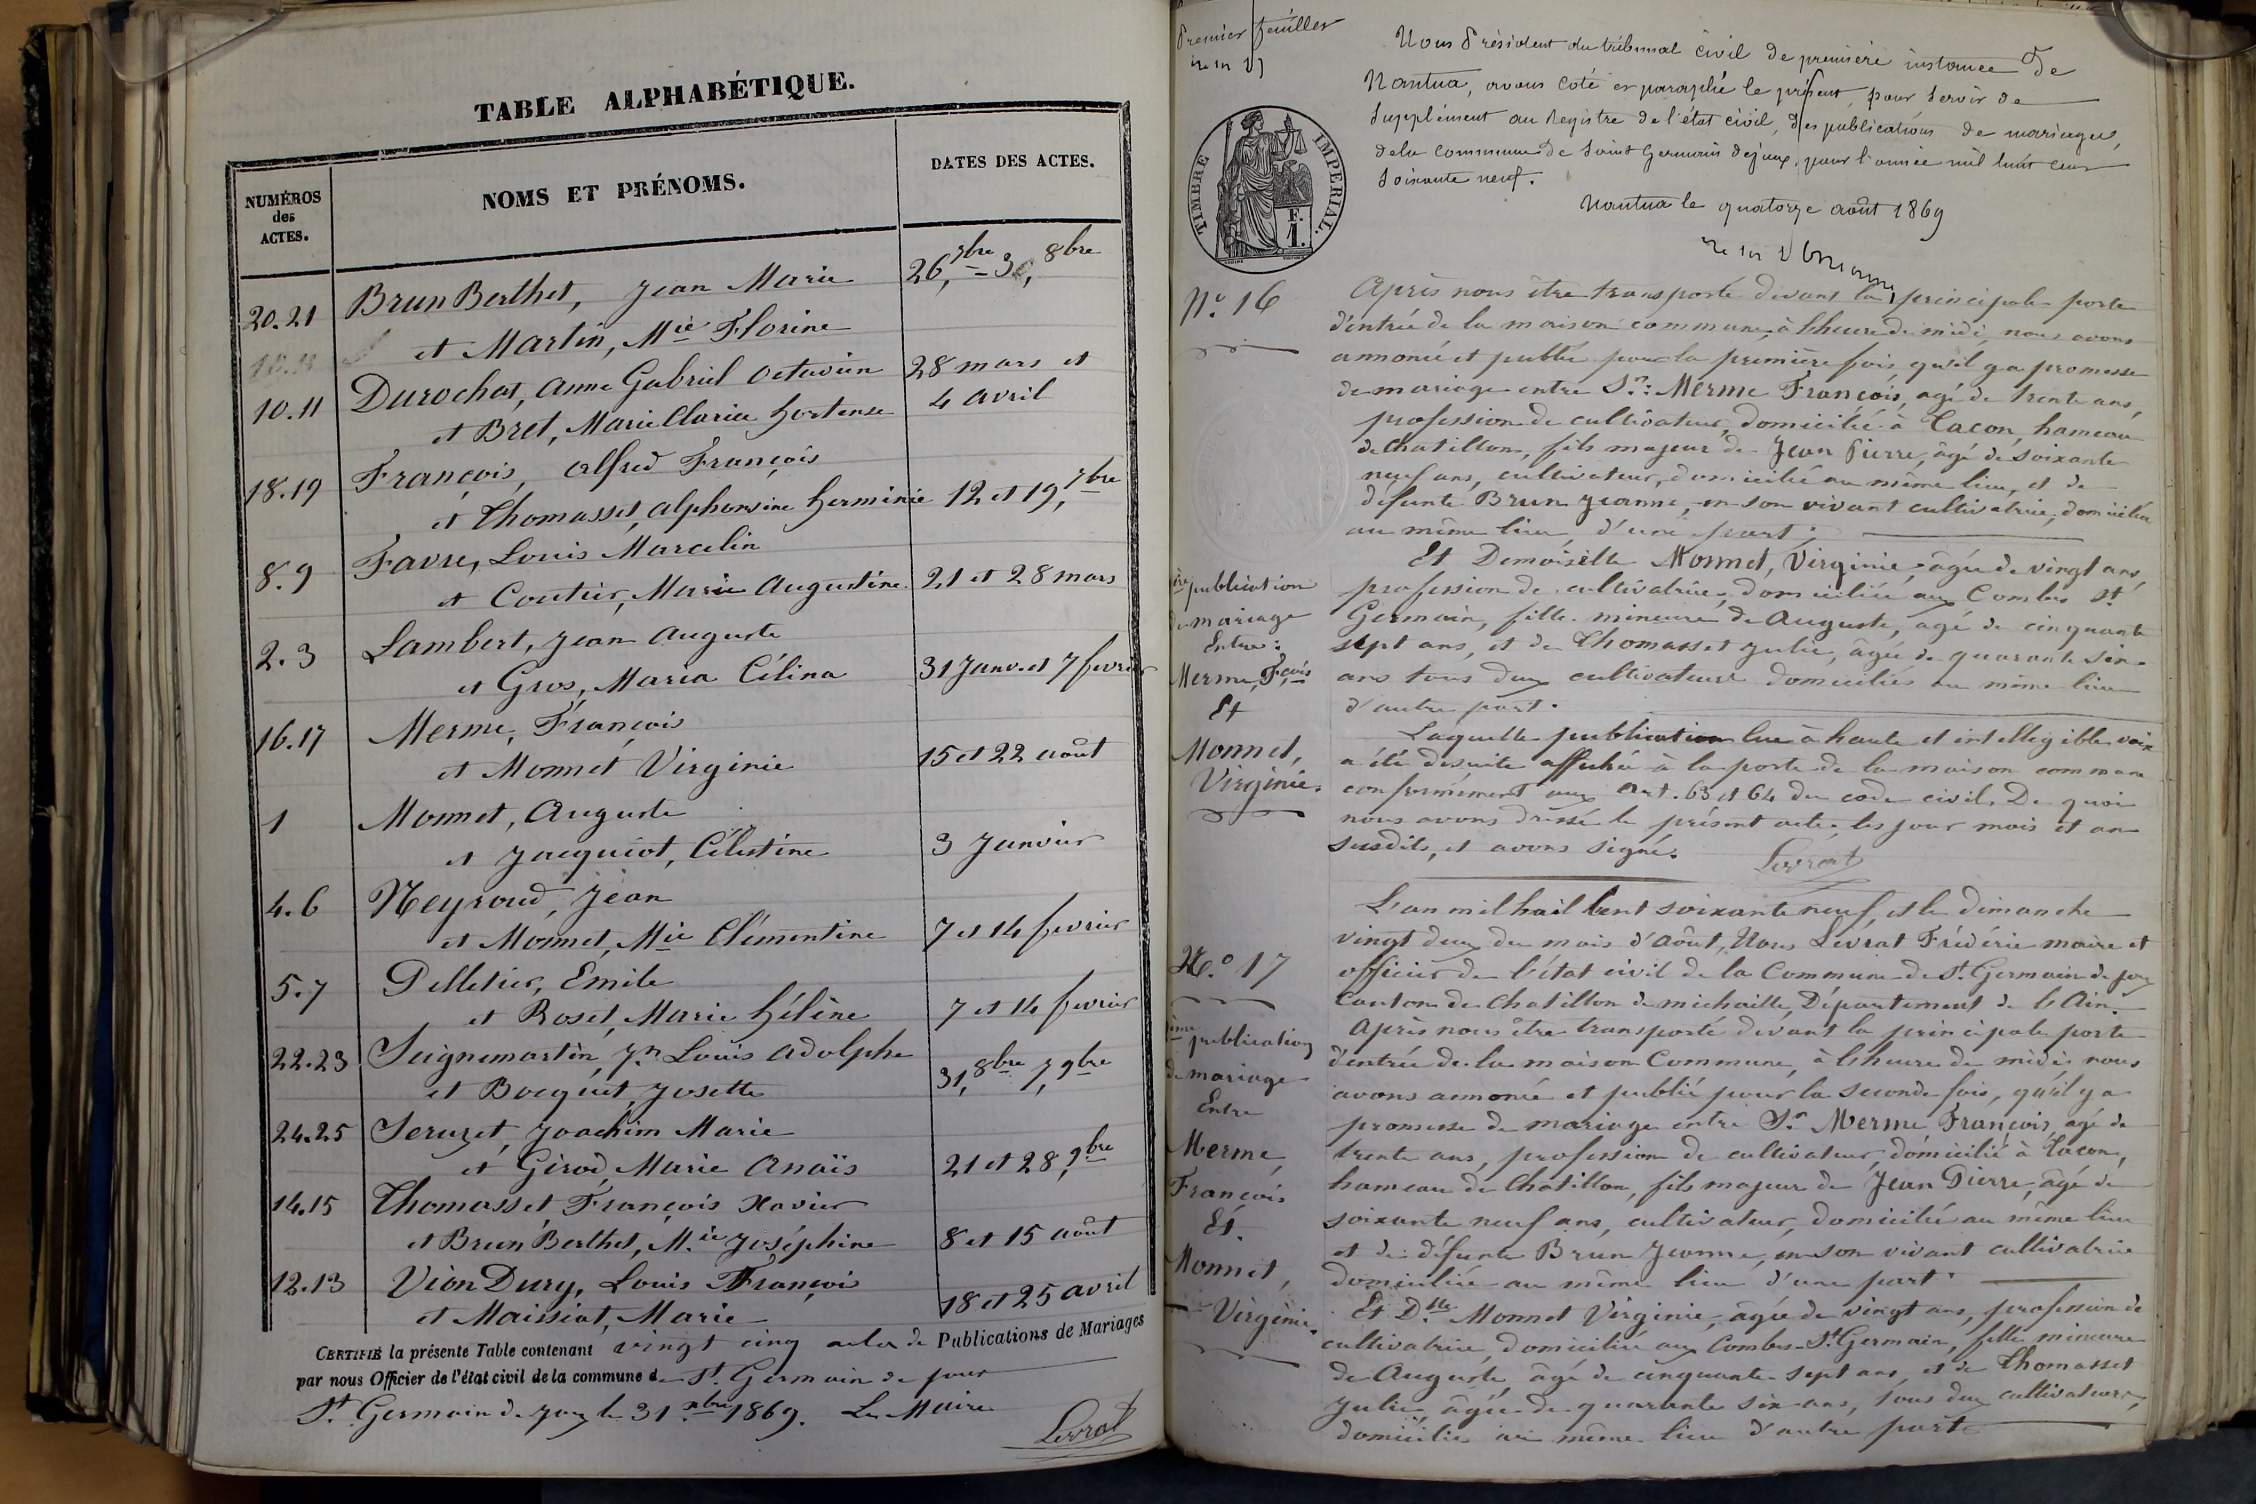 TABLE ALPHABÉTIQUE.
NUMÉROS des ACTES.
NOMS ET PRÉNOMS.
DATES DES ACTES.
20.21 Brun Berthet, Jean Marie 26, 7bre = 3, 8bre
et Martin, Mie Florine
10.11 Durochat, Anne Gabriel Octavien 28 mars et
et Bret, Marie Clarice Hortense 4 avril
18.19 François, Alfred François
et Thomasset, Alphonsine Herminie 12 et 19, 7bre
8.9 Favre, Louis Marcelin
et Coutier, Marie Augustine 21 et 28 mars
2.3 Lambert, Jean Auguste
et Gros, Maria Célina 31 Janv. et 7 fevrier
16.17 Merme, François
et Monnet Virginie 15 et 22 août
1 Monnet, Auguste
et Jacquiot, Célestine 3 Janvier
4.6 Neyroud, Jean
et Monnet, Mie Clémentine 7 et 14 fevrier
5.7 Pelletier, Émile
et Roset, Marie Hélène 7 et 14 fevrier
22.23 Seignemartin, Jn Louis Adolphe
et Bocquet, Josette 31, 8bre 7, 9bre
24.25 Seruzet, Joachim Marie
et Girod, Marie Anaïs 21 et 28, 9bre
14.15 Thomasset François Xavier
et Brun Berthet, Mie Joséphine 8 et 15 août
12.13 Vion Dury, Louis François
et Maissiat, Marie 18 et 25 avril
CERTIFIÉ la présente Table contenant vingt cinq actes de Publications de Mariages
par nous Officier de l'état civil de la commune de St. Germain de joux
St. Germain de Joux le 31 xbre 1869. Le Maire
Levrat
Premier feuillet
Nous Président du tribunal civil de première instance de
Nantua, avons coté et paraphé le présent, pour servir de
supplément au registre de l'état civil, des publications de mariages,
de la commune de Saint Germain de joux, pour l'année mil huit cent
soixante neuf.
Nantua le quatorze août 1869
TIMBRE IMPERIAL.
F.
1.
N.° 16
Après nous être transporté devant la principale porte
d'entrée de la maison commune, à l'heure de midi, nous avons
annoncé et publié pour la première fois, qu'il y a promesse
de mariage entre Sr: Merme François, agé de trente ans,
profession de cultivateur, domicilié à Tacon, hameau
de Chatillon, fils majeur de Jean Pierre, âgé de soixante
neuf ans, cultivateur, domicilié au même lieu, et de
défunte Brun Jeanne, en son vivant cultivatrice, domiciliée
au même lieu, d'une part;
Et Demoiselle Monnet, Virginie, âgée de vingt ans,
profession de cultivatrice, domiciliée aux Combes St.
Germain, fille mineure de Auguste, âgé de cinquante
sept ans, et de Thomasset Julie, âgée de quarante six
ans tous deux cultivateurs domiciliés au même lieu
d'autre part.
1ère publication
de mariage
Entre:
Merme, Fçois
Et
Monnet,
Virginie.
Laquelle publication lue à haute et intelligible voix
a été desuite affichée à la porte de la maison commune
conformément aux art. 63 et 64 du code civil. De quoi
nous avons dressé le présent acte, les jour mois et an
susdits, et avons signé.
Levrat
L'an mil huit Cent soixante neuf, et le dimanche
vingt deux du mois d'Août, Nous Levrat Frédéric maire et
officier de l'état civil de la Commune de St. Germain de joux
Canton de Chatillon de michaille, Département de l'Ain.
N.° 17
Après nous être transporté devant la principale porte
d'entrée de la maison Commune, à l'heure de midi, nous
avons annoncé et publié pour la seconde fois, qu'il y a
promesse de mariage entre Sr Merme François, agé de
trente ans, profession de cultivateur, domicilié à Tacon,
hameau de Chatillon, fils majeur de Jean Pierre, âgé de
soixante neuf ans, cultivateur, domicilié au même lieu
et de défunte Brun Jeanne, en son vivant cultivatrice
domiciliée au même lieu d'une part.
Et Dlle Monnet Virginie, âgée de vingt ans, profession de
cultivatrice, domiciliée aux Combes-St Germain, fille mineure
de Auguste, âgé de cinquante sept ans, et de Thomasset
Julie, âgée de quarante six ans, tous deux cultivateurs,
domiciliés au même lieu d'autre part
publication
de mariage
Entre
Merme,
François
Et.
Monnet,
Virginie.